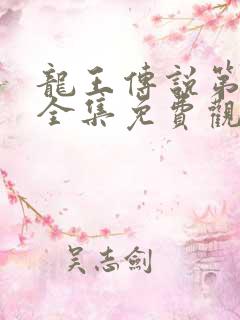 龍王傳說第
全集免費觀
吳志劍